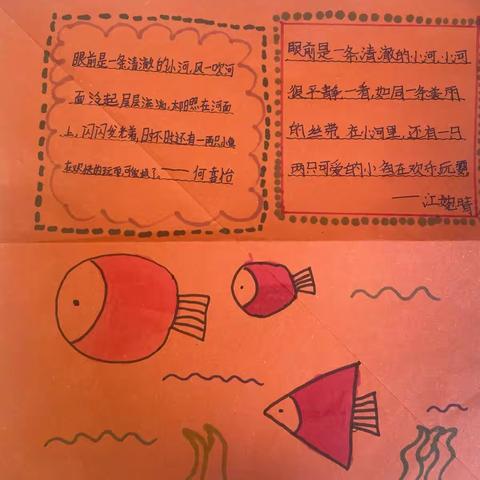 眼前是一条清澈的小河,风一吹河
面泛起层层涟漪,太阳照在河面
上,闪闪发光着,时不时还有一两只小鱼
在欢快的玩耍,可
——何喜怡
眼前是一条清澈的小河,小河
很平静,一看,如同一条
的丝带,在小河里,还有一只
两只可爱的小鱼在欢乐玩耍
——江 晴